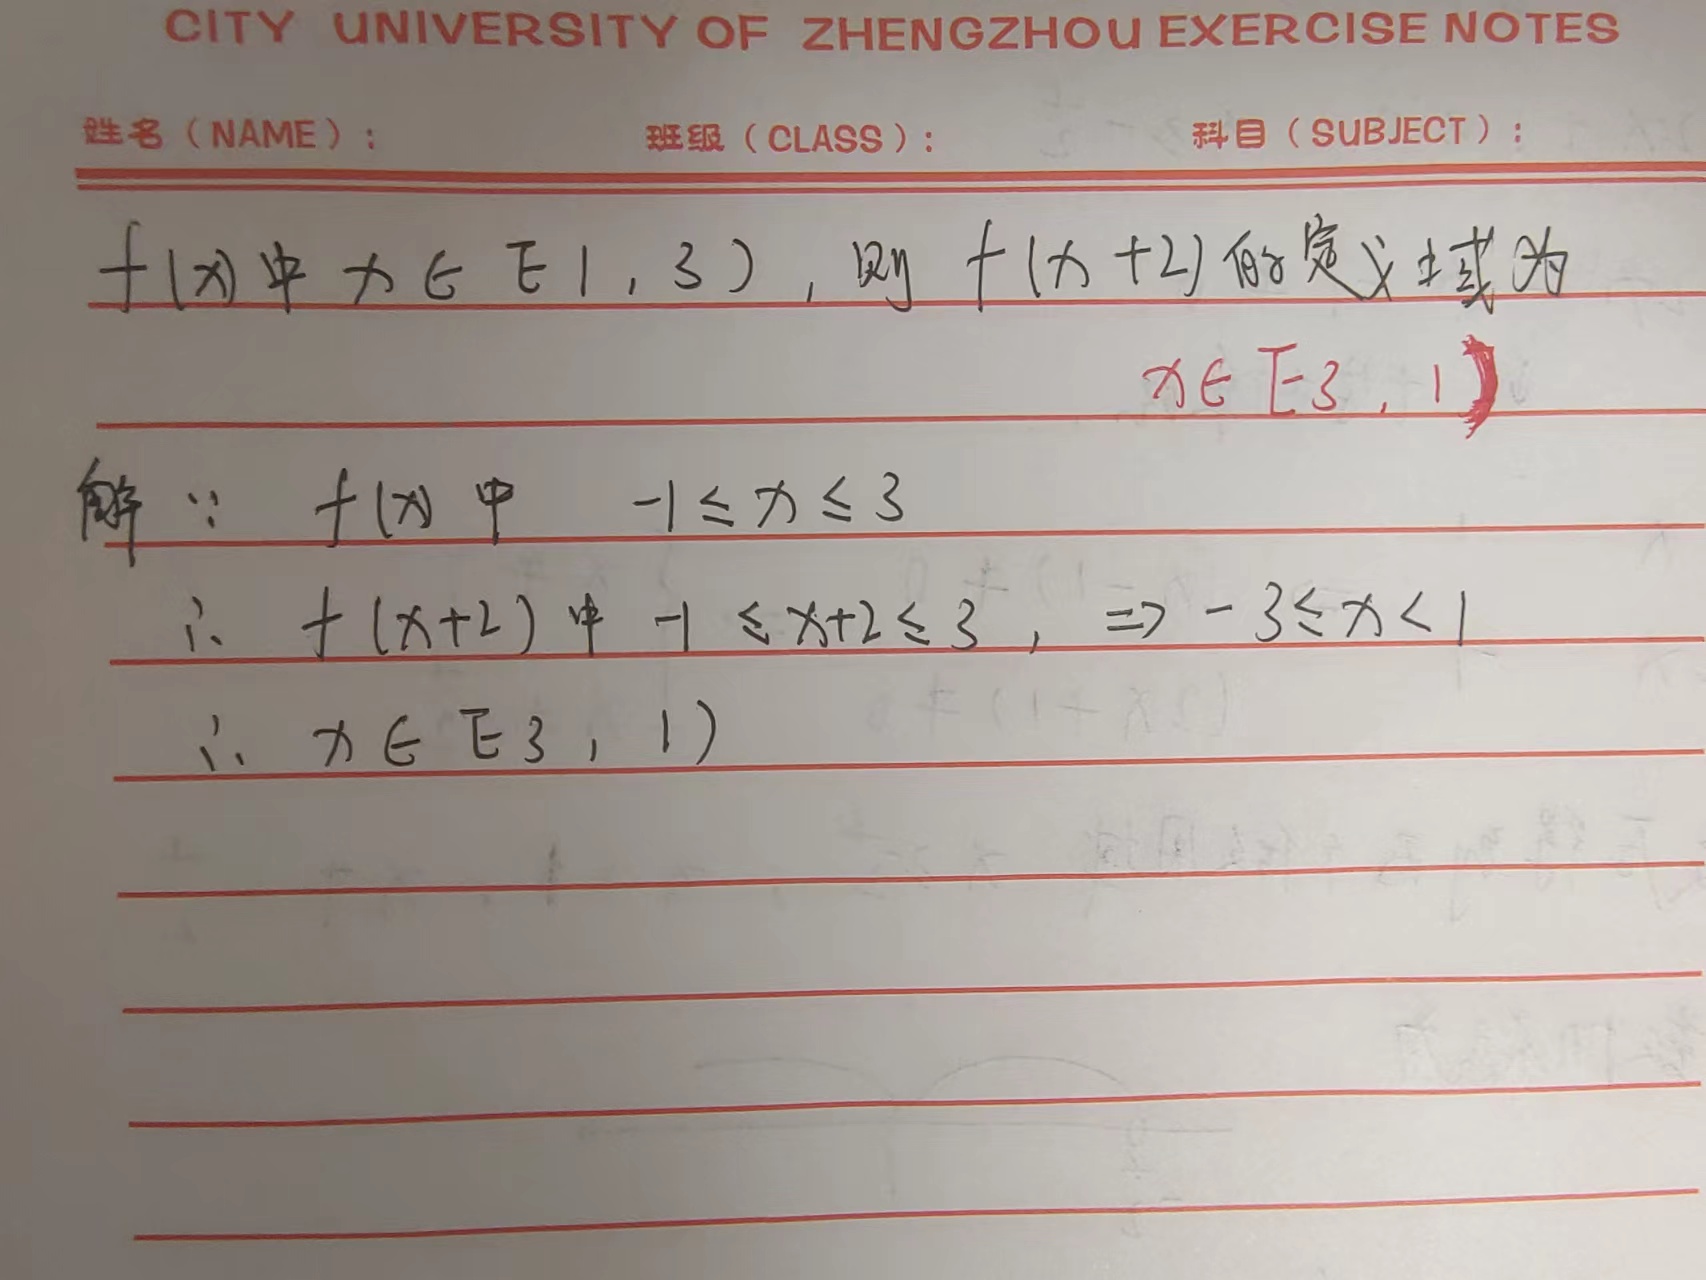 CITY UNIVERSITY OF ZHENGZHOU EXERCISE NOTES
姓名（NAME）： 班级（CLASS）： 科目（SUBJECT）：
f(x)中 x∈[-1,3)，则 f(x+2)的定义域为
x∈[-3,1)
解∵ f(x)中 -1≤x≤3
∴ f(x+2)中 -1≤x+2≤3, => -3≤x<1
∴ x∈[-3,1)